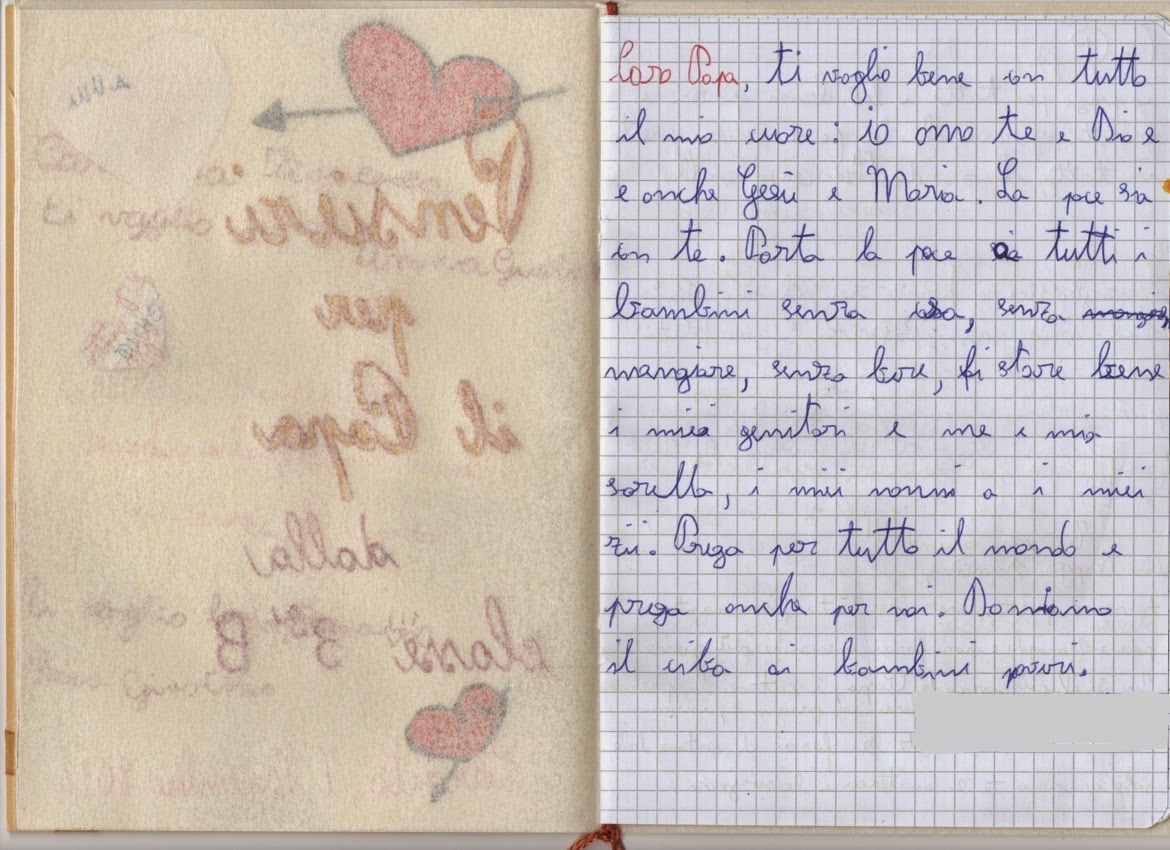 Pensieri
per
il Papa
dalla
classe 3ª B
ti voglio
Caro Papa, ti voglio bene con tutto
il mio cuore: io amo te e Dio e
e anche Gesù e Maria. La pace sia
con te. Porta la pace a tutti i
bambini senza casa, senza
mangiare, senza bere, fi stare bene
i miei genitori e me e mia
sorella, i miei nonni a i miei
zii. Prega per tutto il mondo e
prega anche per noi. Doniamo
il cibo ai bambini poveri.